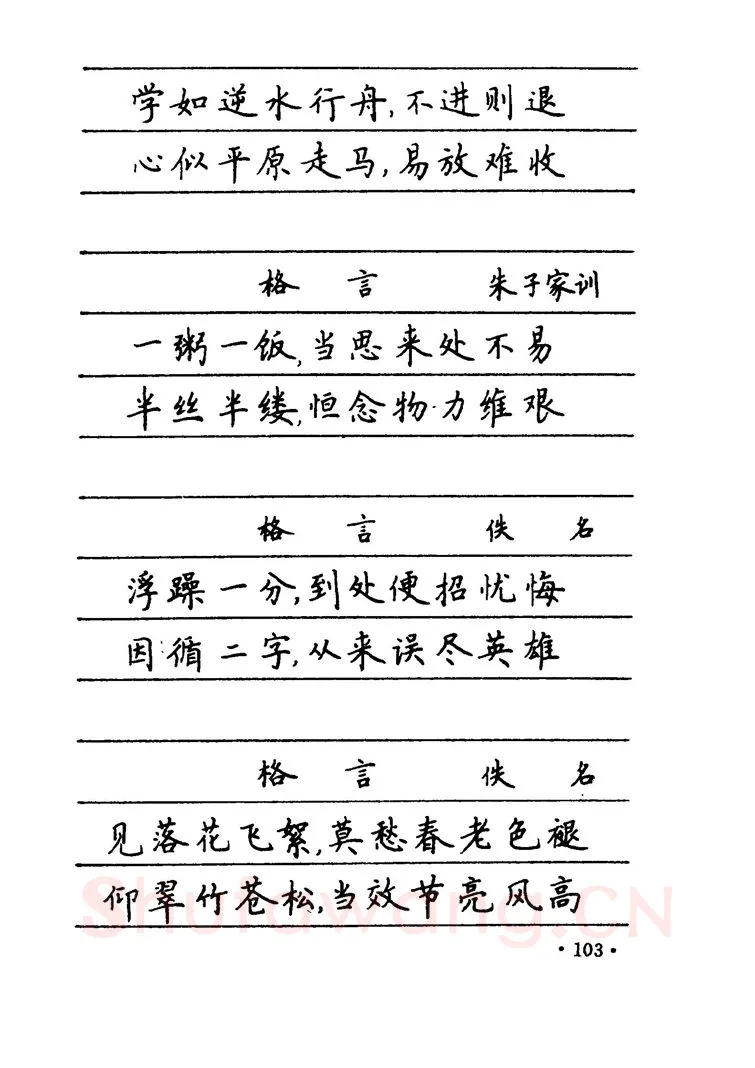 学如逆水行舟,不进则退
心似平原走马,易放难收
格 言 朱子家训
一粥一饭,当思来处不易
半丝半缕,恒念物力维艰
格 言 佚 名
浮躁一分,到处便招忧悔
因循二字,从来误尽英雄
格 言 佚 名
见落花飞絮,莫愁春老色褪
仰翠竹苍松,当效节亮风高
Shufawang.CN
·103·